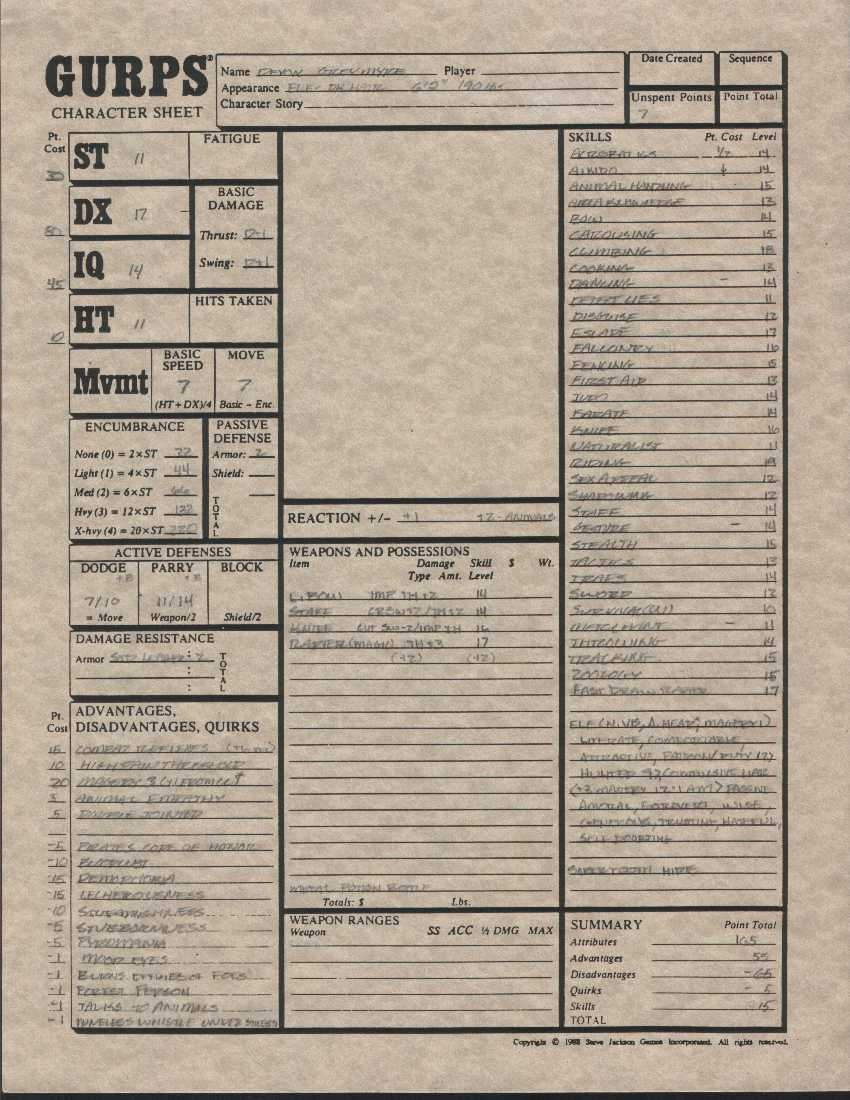 GURPS®
CHARACTER SHEET
Name Player
Appearance ELF- DK HAIR 190 lbs
Character Story
Date Created Sequence
Unspent Points Point Total
7
Pt. Cost
ST 11
FATIGUE
DX 17
80
BASIC DAMAGE
Thrust: D-1
Swing: D+1
IQ 14
45
HT 11
10
HITS TAKEN
Mvmt
BASIC SPEED MOVE
7 7
(HT+DX)/4 Basic - Enc.
ENCUMBRANCE
None (0) = 2×ST 22
Light (1) = 4×ST 44
Med (2) = 6×ST 66
Hvy (3) = 12×ST 132
X-hvy (4) = 20×ST 220
PASSIVE DEFENSE
Armor: 2
Shield:
TOTAL
ACTIVE DEFENSES
DODGE PARRY BLOCK
7/10 11/14
= Move Weapon/2 Shield/2
DAMAGE RESISTANCE
Armor : 2
TOTAL
Pt. Cost
ADVANTAGES, DISADVANTAGES, QUIRKS
15 COMBAT REFLEXES
10 HIGH PAIN THRESHOLD
20 MAGERY 3
5 ANIMAL EMPATHY
5 DOUBLE JOINTED
-5 PIRATES CODE OF HONOR
-10 BLOODLUST
-15
-15 LECHEROUSNESS
-10
-5 STUBBORNNESS
-5 PYROMANIA
-1 MOOD EYES
-1 BURNS OF FOES
-1 FOREST PERSON
-1 TALKS TO ANIMALS
-1 TUNELESS WHISTLE UNDER STRESS
REACTION +/- +1 +2 - ANIMALS
WEAPONS AND POSSESSIONS
Item Damage Skill $ Wt.
Type Amt. Level
L. BOW IMP TH+2 14
STAFF CR SW+2/TH+2 14
KNIFE CUT SW-2/IMP TH 16
RAPIER (MAGIC) TH+3 17
(+2) (+2)
METAL POTION BOTTLE
Totals: $ Lbs.
WEAPON RANGES
Weapon SS ACC ½ DMG MAX
SKILLS Pt. Cost Level
ACROBATICS 1/2 14
AIKIDO 14
ANIMAL HANDLING 15
AREA KNOWLEDGE 13
BOW 14
CAROUSING 15
CLIMBING 18
COOKING 13
DANCING - 14
DETECT LIES 11
DISGUISE 12
ESCAPE 17
FALCONRY 16
FENCING 15
FIRST AID 13
JUDO 14
KARATE 14
KNIFE 16
NATURALIST 11
RIDING 19
SEX APPEAL 12
SHADOWING 12
STAFF 14
GESTURE - 14
STEALTH 15
TACTICS 13
TRAPS 14
SWORD 12
SURVIVAL 10
- 11
14
TRACKING 15
ZOOLOGY 15
FAST DRAW RAPIER 17
ELF (N. VIS, A. HEAR, MAGERY 1)
LITERATE,
ATTRACTIVE, PATRON/DUTY 12)
HUNTED 9, COMPULSIVE LIAR
AMORAL, EXTROVERT,
GENEROUS, TRUSTING,
SELF DOUBTING
SABERTOOTH HIDE
SUMMARY Point Total
Attributes 165
Advantages 55
Disadvantages -65
Quirks - 5
Skills 15
TOTAL
Copyright © 1988 Steve Jackson Games Incorporated. All rights reserved.